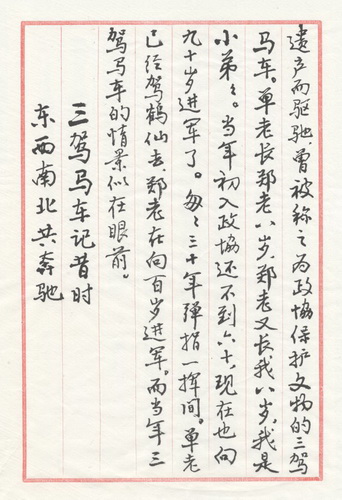 遗产而驱驰，曾被称之为政协保护文物的三驾
马车。单老长郑老八岁，郑老又长我八岁，我是
小弟々。当年初入政协还不到六十，现在也向
九十岁进军了。匆々三十年弹指一挥间。单老
已经驾鹤仙去，郑老在向百岁进军。而当年三
驾马车的情景似在眼前。
三驾马车记昔时
东西南北共奔驰